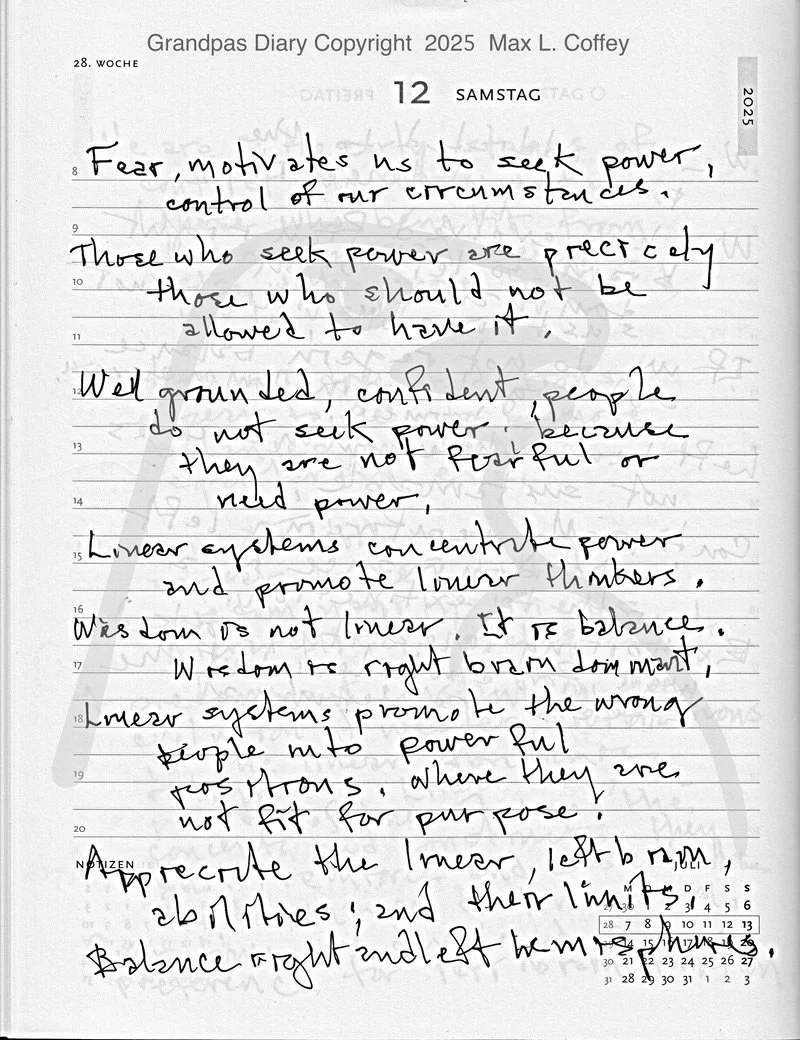 Grandpas Diary Copyright 2025 Max L. Coffey
28. WOCHE
12 SAMSTAG
2025
8 Fear, motivates us to seek power,
control of our circumstances.
9
Those who seek power are precicely
10 those who should not be
11 allowed to have it.
12 Well grounded, confident, people
do not seek power. because
13 they are not fearful or
14 need power,
15 Linear systems concentrate power
and promote linear thinkers.
16
Wisdom is not linear. It is balance.
17 Wisdom is right brain dominant,
18 Linear systems promote the wrong
people into powerful
19 positions. where they are
not fit for purpose!
20
NOTIZEN
Appreciate the linear, left brain,
abilities; and their limits.
Balance right and left hemispheres.
JULI
M D F S S
2 3 4 5 6
28 7 8 9 10 11 12 13
14 15 16 17 18 19 20
30 21 22 23 24 25 26 27
31 28 29 30 31 1 2 3